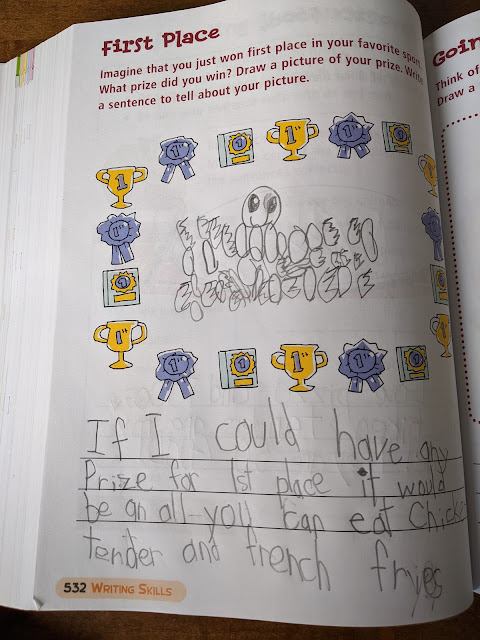 First Place
Imagine that you just won first place in your favorite sport.
What prize did you win? Draw a picture of your prize. Write
a sentence to tell about your picture.
Goin
Think of
Draw a
1st
1st
1
1
1st
1st
1
1st
If I could have any
Prize for 1st place it would
be an all-you can eat Chick
tender and french fryes
532 WRITING SKILLS